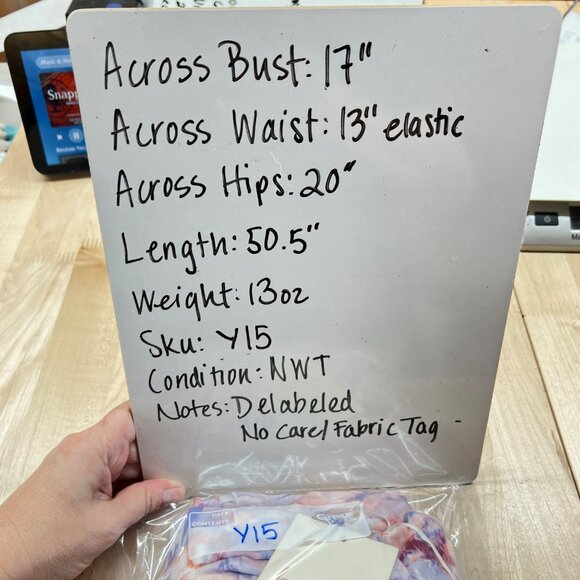 Music & M
Snapp
Because You
Across Bust: 17"
Across Waist: 13" elastic
Across Hips: 20"
Length: 50.5"
Weight: 13oz
Sku: Y15
Condition: NWT
Notes: Delabeled
No Care/Fabric Tag -
DATE
CONTENTS
Y15